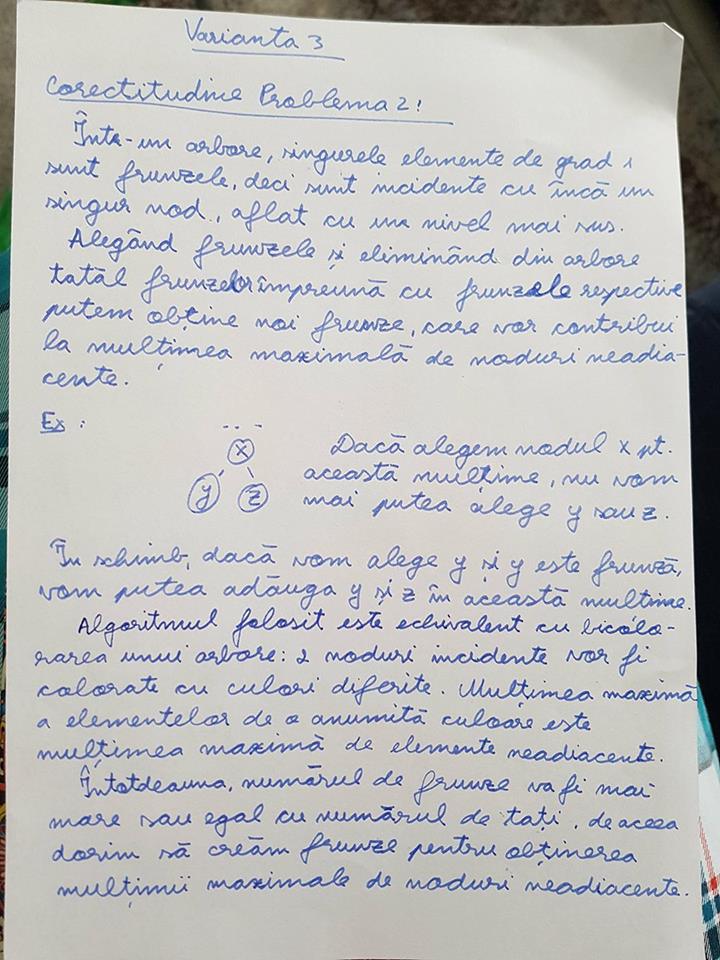 Varianta 3
Corectitudine Problema 2!
Într-un arbore, singurele elemente de grad 1
sunt frunzele, deci sunt incidente cu încă un
singur nod, aflat cu un nivel mai sus.
Alegând frunzele și eliminând din arbore
tatăl frunzelor împreună cu frunzele respective
putem obține noi frunze, care vor contribui
la mulțimea maximală de noduri neadia-
cente.
Ex:
...
x
y z
Dacă alegem nodul x pt.
această mulțime, nu vom
mai putea alege y sau z.
În schimb, dacă vom alege y și y este frunză,
vom putea adăuga y și z în această multime.
Algoritmul folosit este echivalent cu bicolo-
rarea unui arbore: 2 noduri incidente vor fi
colorate cu culori diferite. Mulțimea maximă
a elementelor de o anumită culoare este
mulțimea maximă de elemente neadiacente.
Întotdeauna, numărul de frunze va fi mai
mare sau egal cu numărul de tați, de aceea
dorim să creăm frunze pentru obținerea
mulțimii maximale de noduri neadiacente.